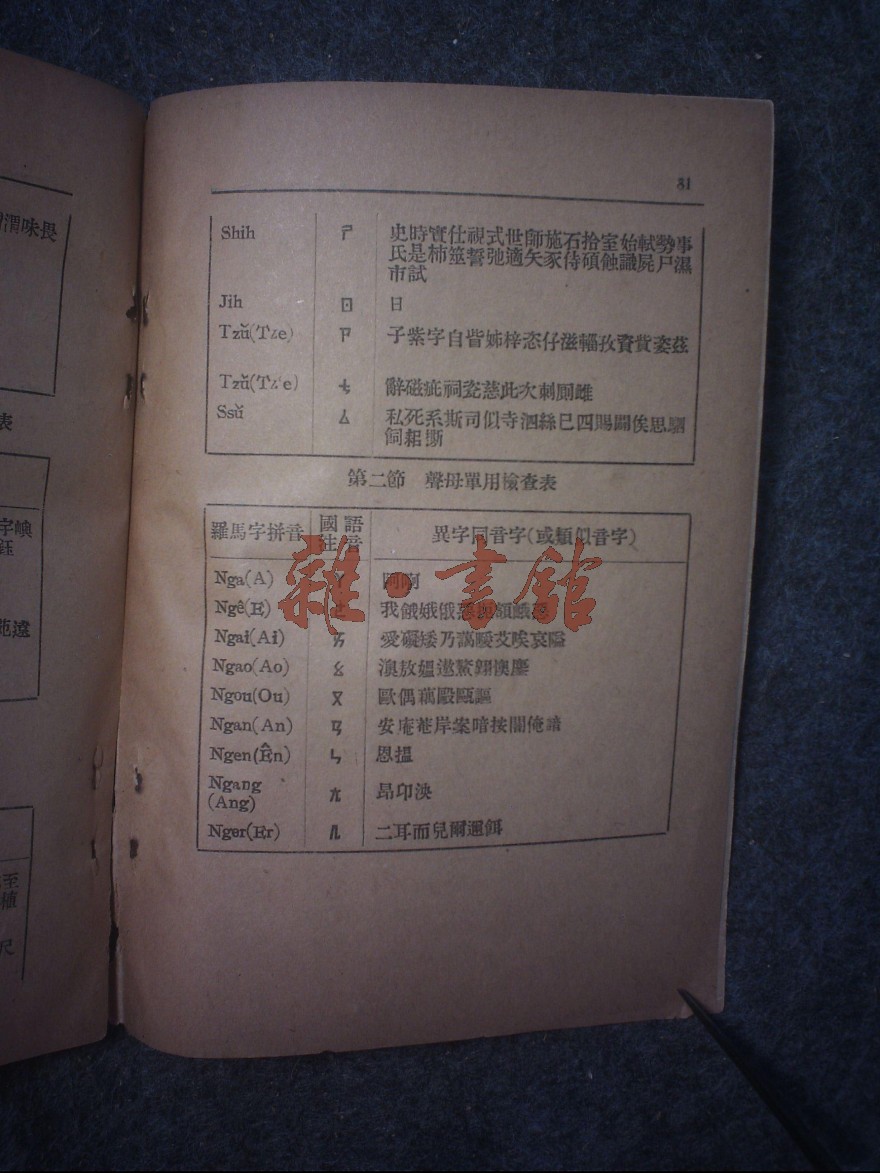 81
Shih ㄕ 史時實仕視式世師施石拾室始軾勢事
氏是柿筮誓弛適矢豕侍碩蝕識屍尸濕
市試
Jih ㄖ 日
Tzŭ(Tze) ㄗ 子紫字自訾姊梓恣仔滋輜孜資貲姿茲
Tzŭ(Tz'e) ㄘ 辭磁疵祠瓷慈此次刺厠雌
Ssŭ ㄙ 私死系斯司似寺泗絲巳四賜俟思駟
飼耜撕
第二節 聲母單用檢查表
羅馬字拼音 國語 異字同音字(或類似音字)
注音
Nga(A) ㄚ 阿啊
Ngê(E) ㄜ 我餓娥俄
Ngai(Ai) ㄞ 愛礙矮乃藹曖艾唉哀隘
Ngao(Ao) ㄠ 澳敖媼遨翱懊
Ngou(Ou) ㄡ 歐偶藕毆甌謳
Ngan(An) ㄢ 安庵菴岸案暗按闇俺諳
Ngen(Ên) ㄣ 恩搵
Ngang ㄤ 昂卬泱
(Ang)
Nger(Er) ㄦ 二耳而兒爾邇餌
謂味畏
表
字嶼
鈺
至
植
尺
雜·書館